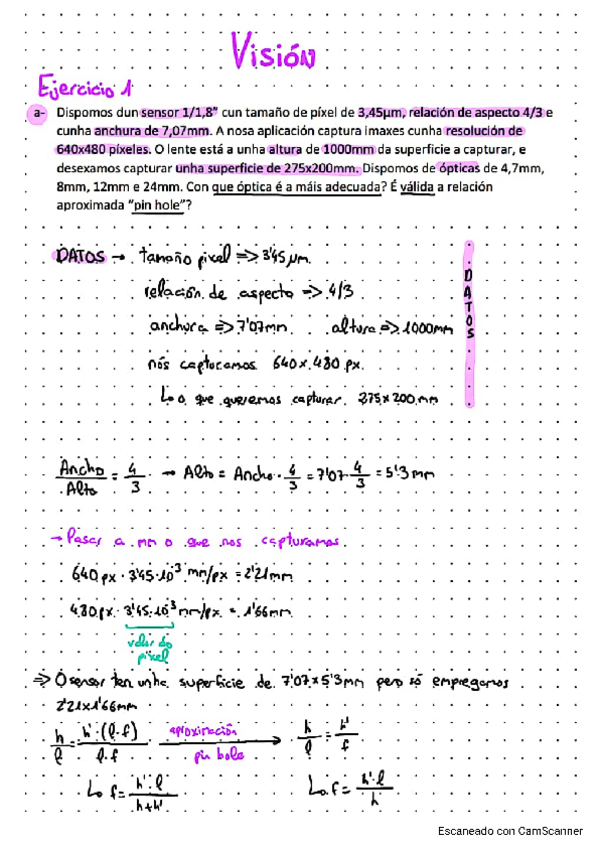 Visión
Ejercicio 1
a- Dispomos dun sensor 1/1,8” cun tamaño de píxel de 3,45µm, relación de aspecto 4/3 e
cunha anchura de 7,07mm. A nosa aplicación captura imaxes cunha resolución de
640x480 píxeles. O lente está a unha altura de 1000mm da superficie a capturar, e
desexamos capturar unha superficie de 275x200mm. Dispomos de ópticas de 4,7mm,
8mm, 12mm e 24mm. Con que óptica é a máis adecuada? É válida a relación
aproximada “pin hole”?
DATOS → tamaño pixel => 3'45 µm.
relación de aspecto => 4/3
anchura => 7'07mm. altura => 1000mm
nós capturamos 640x480 px.
↳ o que queremos capturar 275x200 mm
DATOS
Ancho/Alto = 4/3 → Alto = Ancho · 4/3 = 7'07 · 4/3 = 5'3 mm
→ Pasar a mm o que nos capturamos.
640 px · 3'45·10³ mm/px = 2'21mm
480 px · 3'45·10³ mm/px = 1'66mm
valor do
pixel
=> O sensor ten unha superficie de 7'07x5'3mm pero só empregamos
2'21x1'66mm
h/l = h'·(l·f)/l·f aproximación pin hole → h/l = h'/f
↳ f = h'·l/h+h' ↳ f = h'·l/h
Escaneado con CamScanner